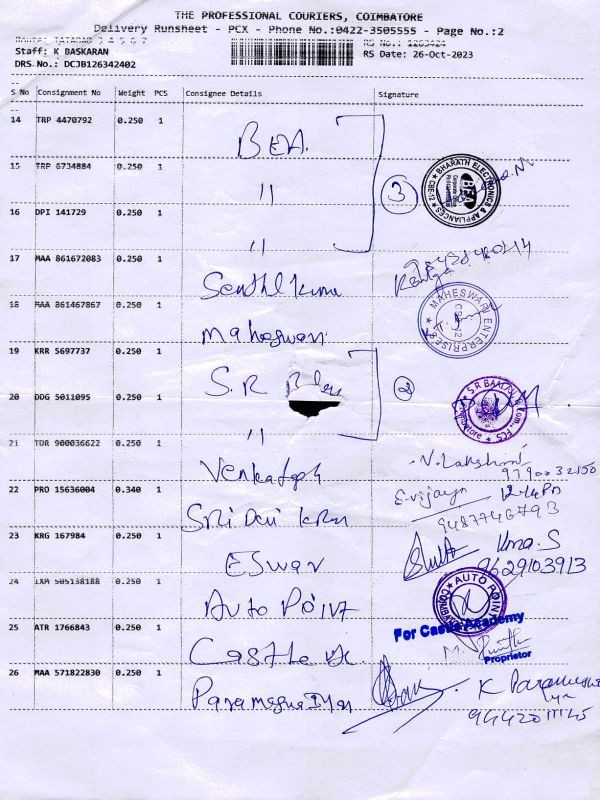 THE PROFESSIONAL COURIERS, COIMBATORE
Delivery Runsheet - PCX - Phone No.:0422-3505555 - Page No.:2
Staff: K BASKARAN
RS No.: 1263424
DRS No.: DCJB126342402
RS Date: 26-Oct-2023
S No Consignment No Weight PCS Consignee Details Signature
14 TRP 4470792 0.250 1
BEA.
15 TRP 6734884 0.250 1
"
3
BHARATH ELECTRONICS & APPLIANCES
CBE-12
BEA
16 DPI 141729 0.250 1
"
17 MAA 861672083 0.250 1
Senthil Kumar
18 MAA 861467867 0.250 1
Maheswari
MAHESWARI ENTERPRISES
19 KRR 5697737 0.250 1
S.R.
20 DDG 5011095 0.250 1
2
"
21 TDR 900036622 0.250 1
Venkatesh
V. Lakshmi
9790032150
22 PRO 15636004 0.340 1
Sri Devi
E. vijaya 12:44 Pm
9487746793
23 KRG 167984 0.250 1
Eswar
Uma.S
9629103913
24 505138188 0.250 1
Auto Point
AUTO POINT
25 ATR 1766843 0.250 1
Castle
For Castle Academy
Proprietor
26 MAA 571822830 0.250 1
K